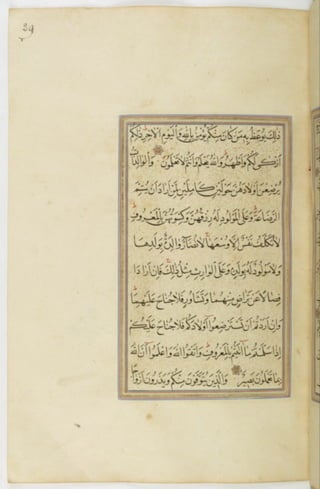 39
ذلِكَ يُوعَظُ بِهِ مَن كَانَ مِنكُم يُؤمِنُ بِاللهِ وَاليَومِ الاخِرِ ذلِكُم
اَزكى لَكُم وَاَطهَرُ وَاللهُ يَعلَمُ وَاَنتُم لا تَعلَمُونَ وَالوَالِدَاتُ
يُرضِعنَ اَولادَهُنَّ حَولَينِ كَامِلَينِ لِمَن اَرَادَ اَن يُتِمَّ
الرَّضَاعَةَ وَعَلَى المَولُودِ لَهُ رِزقُهُنَّ وَكِسوَتُهُنَّ بِالمَعرُوفِ
لا تُكَلَّفُ نَفسٌ اِلا وُسعَهَا لا تُضَارَّ وَالِدَةٌ بِوَلَدِهَا
وَلا مَولُودٌ لَهُ بِوَلَدِهِ وَعَلَى الوَارِثِ مِثلُ ذلِكَ فَاِن اَرَادَا
فِصَالا عَن تَرَاضٍ مِنهُمَا وَتَشَاوُرٍ فَلا جُنَاحَ عَلَيهِمَا
وَاِن اَرَدتُم اَن تَستَرضِعُوا اَولادَكُم فَلا جُنَاحَ عَلَيكُم
اِذَا سَلَّمتُم مَا اتَيتُم بِالمَعرُوفِ وَاتَّقُوا اللهَ وَاعلَمُوا اَنَّ اللهَ
بِمَا تَعمَلُونَ بَصِيرٌ وَالَّذِينَ يُتَوَفَّونَ مِنكُم وَيَذَرُونَ اَزوَاجًا